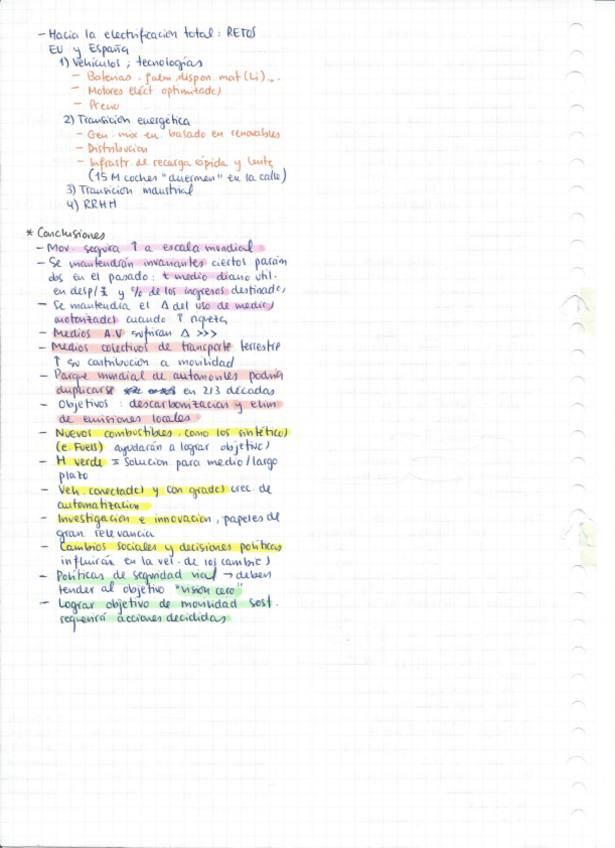 - Hacia la electrificacion total: RETOS
EU y España
1) Vehiculos ; tecnologías
- Baterias . , dispon. mat (Li)...
- Motores eléct optimizados
- Precio
2) Transición energética
- Gen. mix en. basado en renovables
- Distribucion
- Infrastr. de recarga rápida y lenta
(15 M coches "duermen" en la calle)
3) Transicion industrial
4) RRHH
* Conclusiones
- Mov. seguirá ↑ a escala mundial
- Se mantendrán invariantes ciertos parám
dos en el pasado: t medio diario util.
en desp/ y % de los ingresos destinados
- Se mantendrá el Δ del uso de medios
motorizados cuando ↑ riqueza
- Medios A.V sufriran Δ >>>
- Medios colectivos de transporte terrestre
↑ su contribución a movilidad
- Parque mundial de automoviles podría
duplicarse en 2/3 décadas
- Objetivos : descarbonizacion y elim
de emisiones locales
- Nuevos combustibles, como los sintéticos
(e-Fuels) ayudarán a lograr objetivos
- H verde = Solucion para medio/largo
plazo
- Veh. conectados y con grados crec. de
automatización
- Investigación e innovación, papeles de
gran relevancia
- Cambios sociales y decisiones políticas
influirán en la vel. de los cambios
- Políticas de seguridad vial → deben
tender al objetivo "visión cero"
- Lograr objetivo de movilidad sost.
requerirá acciones decididas